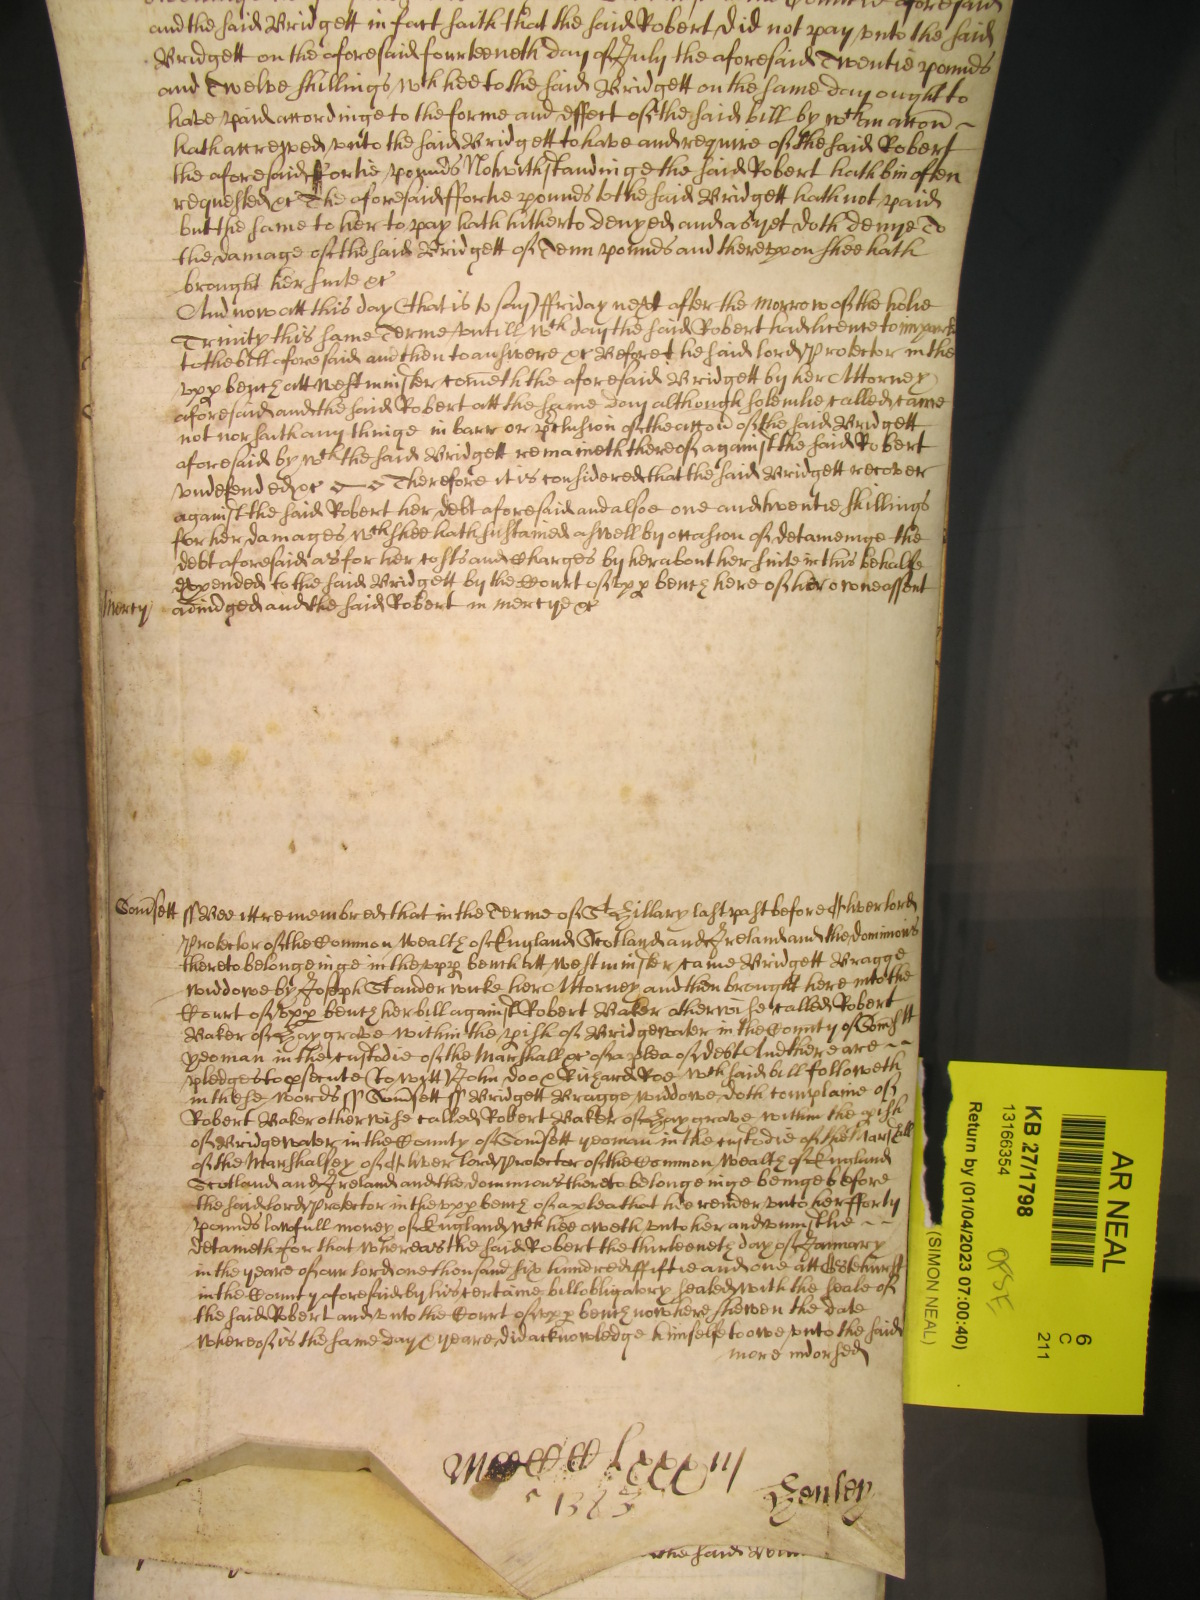 and the said Bridgett in fact saith that the said Robert did not pay unto the said
Bridgett on the aforesaid fourteeneth day of July the aforesaid Twentie pounds
and Twelve shillings wch hee to the said Bridgett on the same day ought to
have paid accordinge to the forme and effect of the said bill by wch an accon
hath accrewed unto the said Bridgett to have and require of the said Robert
the aforesaid ffortie pounds Notwithstandinge the said Robert hath bin often
requested &c The aforesaid ffortie pounds to the said Bridgett hath not paid
but the same to her to pay hath hitherto denyed and as yet doth denye To
the damage of the said Bridgett of Tenn pounds and thereupon shee hath
brought her suite &c
And now att this day (that is to say) ffriday next after the morrow of the holie
Trinity this same Terme untill wch day the said Robert had licence to imparle
to the bill aforesaid and then to answere &c Before the said lord Protector in the
upp bench att Westminster cometh the aforesaid Bridgett by her Attorney
aforesaid and the said Robert att the same day although solemlie called came
not nor saith any thinge in barr or pclusion of the accon of the said Bridgett
aforesaid by wch the said Bridgett remaineth thereof against the said Robert
undefended &c Therefore it is considered that the said Bridgett recover
against the said Robert her debt aforesaid and alsoe one and twentie shillings
for her damages wch shee hath sustained aswell by occasion of detaineinge the
debt aforesaid as for her costs and Charges by her about her suite in this behalfe
expended to the said Bridgett by the Court of upp bench here of her owne assent
Mercy adiudged and the said Robert in mercye &c
Somsett ss Bee itt remembred that in the Terme of St Hillary last past before Oliver lord
Protector of the Common Wealth of England Scotland and Ireland and the dominions
thereto belongeinge in the upp bench att Westminster came Bridgett Bragge
widdowe by Joseph Standerwicke her Attorney and then brought here into the
Court of upp bench her bill against Robert Baker otherwise called Robert
Baker of Haygrove within the pish of Bridgewater in the County of Somsett
yeoman in the custodie of the Marshall &c of a plea of debt And there are
pledges to psecute (to witt) John doo & Richard Roe wch said bill followeth
in these words ss Somsett ss Bridgett Bragge widdowe doth complaine of
Robert Baker otherwise called Robert Baker of Haygrove within the pish
of Bridgewater in the County of Somsett yeoman in the custodie of the Marshall
of the Marshalsey of Oliver lord Protector of the Common Wealth of England
Scotland and Ireland and the dominions thereto belongeinge beinge before
the said lord Protector in the upp bench of a plea that hee render unto her fforty
pounds lawfull money of England wch hee oweth unto her and uniustlie
detaineth for that whereas the said Robert the thirteeneth day of January
in the yeare of our lord one thousand six hundred fiftie and one att
in the County aforesaid by his certaine bill obligatory sealed with the seale of
the said Robert and unto the Court of upp bench now here shewen the date
whereof is the same day & yeare did acknowledge himselfe to owe unto the said
more indorsed
lxxxiij
1383
Henley
the said
AR NEAL
KB 27/1798
13166354
Return by (01/04/2023 07:00:40)
(SIMON NEAL)
6
C
211